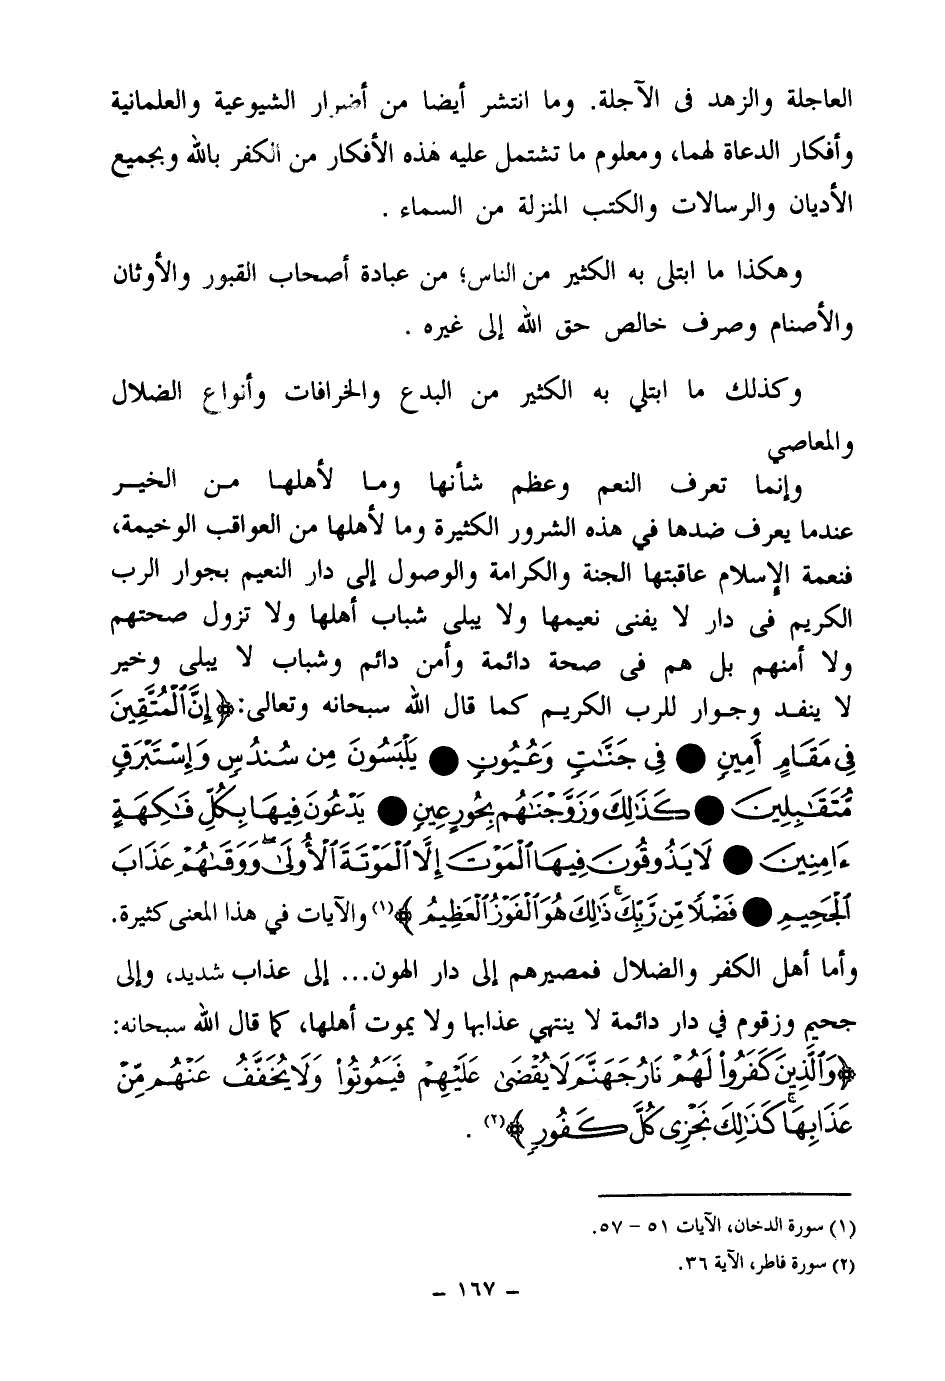 العاجلة والزهد فى الآجلة. وما انتشر أيضا من أضرار الشيوعية والعلمانية
وأفكار الدعاة لهما، ومعلوم ما تشتمل عليه هذه الأفكار من الكفر بالله وبجميع
الأديان والرسالات والكتب المنزلة من السماء .
وهكذا ما ابتلى به الكثير من الناس؛ من عبادة أصحاب القبور والأوثان
والأصنام وصرف خالص حق الله إلى غيره .
وكذلك ما ابتلي به الكثير من البدع والخرافات وأنواع الضلال
والمعاصي
وإنما تعرف النعم وعظم شأنها وما لأهلها من الخير
عندما يعرف ضدها في هذه الشرور الكثيرة وما لأهلها من العواقب الوخيمة،
فنعمة الإسلام عاقبتها الجنة والكرامة والوصول إلى دار النعيم بجوار الرب
الكريم فى دار لا يفنى نعيمها ولا يبلى شباب أهلها ولا تزول صحتهم
ولا أمنهم بل هم فى صحة دائمة وأمن دائم وشباب لا يبلى وخير
لا ينفد وجوار للرب الكريم كما قال الله سبحانه وتعالى: ﴿إِنَّ ٱلْمُتَّقِينَ
فِى مَقَامٍ أَمِينٍ ● فِى جَنَّٰتٍ وَعُيُونٍ ● يَلْبَسُونَ مِن سُندُسٍ وَإِسْتَبْرَقٍ
مُّتَقَٰبِلِينَ ● كَذَٰلِكَ وَزَوَّجْنَٰهُم بِحُورٍ عِينٍ ● يَدْعُونَ فِيهَا بِكُلِّ فَٰكِهَةٍ
ءَامِنِينَ ● لَا يَذُوقُونَ فِيهَا ٱلْمَوْتَ إِلَّا ٱلْمَوْتَةَ ٱلْأُولَىٰ ۖ وَوَقَىٰهُمْ عَذَابَ
ٱلْجَحِيمِ ● فَضْلًا مِّن رَّبِّكَ ۚ ذَٰلِكَ هُوَ ٱلْفَوْزُ ٱلْعَظِيمُ﴾(١) والآيات في هذا المعنى كثيرة.
وأما أهل الكفر والضلال فمصيرهم إلى دار الهون... إلى عذاب شديد، وإلى
جحيم وزقوم في دار دائمة لا ينتهي عذابها ولا يموت أهلها، كما قال الله سبحانه:
﴿وَٱلَّذِينَ كَفَرُوا۟ لَهُمْ نَارُ جَهَنَّمَ لَا يُقْضَىٰ عَلَيْهِمْ فَيَمُوتُوا۟ وَلَا يُخَفَّفُ عَنْهُم مِّنْ
عَذَابِهَا ۚ كَذَٰلِكَ نَجْزِى كُلَّ كَفُورٍ﴾(٢) .
(١) سورة الدخان، الآيات ٥١ – ٥٧.
(٢) سورة فاطر، الآية ٣٦.
– ١٦٧ –